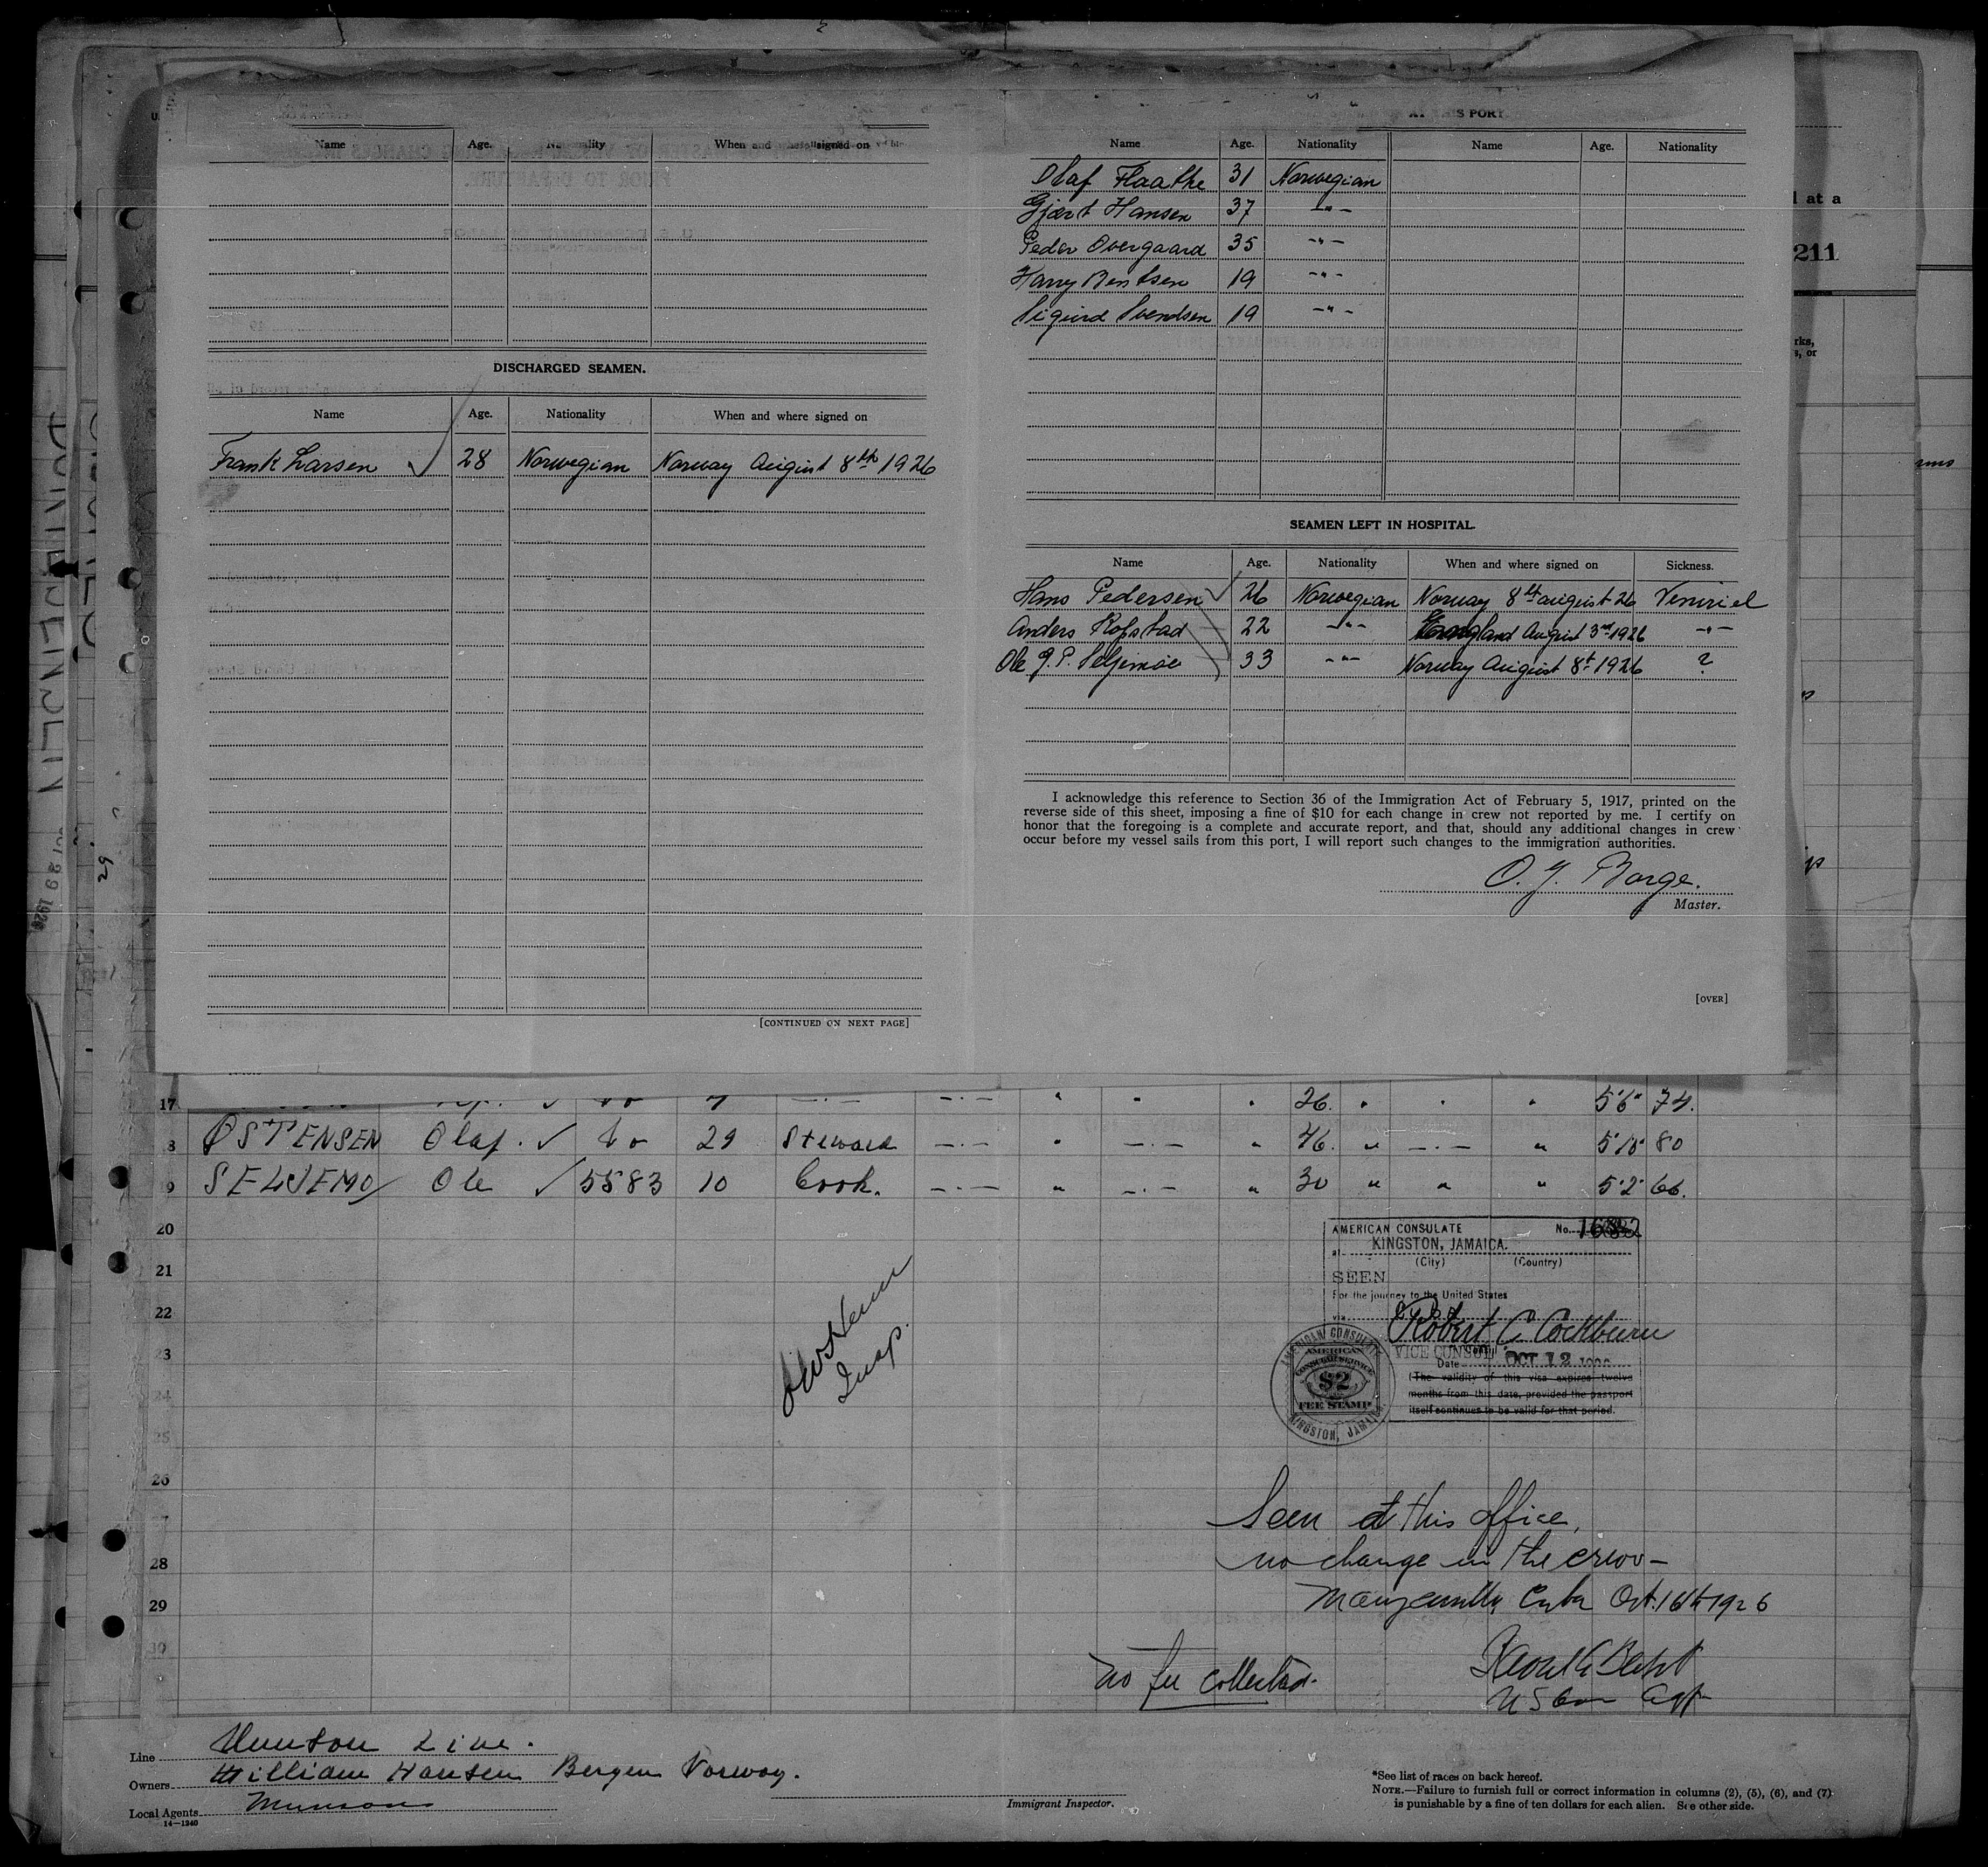 Name Age. Nationality When and where signed on
DISCHARGED SEAMEN.
Name Age. Nationality When and where signed on
Frank Larsen ✓ 28 Norwegian Norway August 8th 1926
[CONTINUED ON NEXT PAGE]
AT THIS PORT.
Name Age. Nationality Name Age. Nationality
Olaf Flaathe 31 Norwegian
Gjært Hansen 37 -"-
Peder Overgaard 35 -"-
Harry Bentsen 19 -"-
Sigurd Svendsen 19 -"-
SEAMEN LEFT IN HOSPITAL.
Name Age. Nationality When and where signed on Sickness.
Hans Pedersen ✓ 26 Norwegian Norway 8th august 26 Veniriel
Anders Rofstad 22 -"- England August 3rd 1926 -"-
Ole J. P. Seljemoe 33 -"- Norway August 8t 1926 ?
I acknowledge this reference to Section 36 of the Immigration Act of February 5, 1917, printed on the
reverse side of this sheet, imposing a fine of $10 for each change in crew not reported by me. I certify on
honor that the foregoing is a complete and accurate report, and that, should any additional changes in crew
occur before my vessel sails from this port, I will report such changes to the immigration authorities.
O. J. Borge.
Master.
[OVER]
l at a
211
rks,
s, or
17 26. 5'6" 74.
8 ØSTENSEN Olaf. ✓ do 29 Steward -.- " -.- " 46. " -.- " 5'10" 80
9 SELJEMO Ole ✓ 5583 10 Cook. -.- " -.- " 30 " " " 5'2" 66.
20
21
22
23
24
25
26
27
28
29
30
AMERICAN CONSULATE No.
at KINGSTON, JAMAICA.
(City) (Country)
SEEN
For the journey to the United States
via
Robert C Cockburn
VICE CONSUL
Date OCT 12
(The validity of this visa expires twelve
months from this date, provided the passport
itself continues to be valid for that period.
AMERICAN CONSULATE
AMERICAN
CONSULAR SERVICE
$2
FEE STAMP
KINGSTON, JAMAICA
Insp.
Seen at this office,
no change in the crew -
Manzanillo Cuba Oct. 16th 1926
no fee collected.
U S Con Agt
Line Munson Line.
Owners William Hansen Bergen Norway.
Local Agents Munson
14-1240
Immigrant Inspector.
*See list of races on back hereof.
NOTE.—Failure to furnish full or correct information in columns (2), (5), (6), and (7)
is punishable by a fine of ten dollars for each alien. See other side.